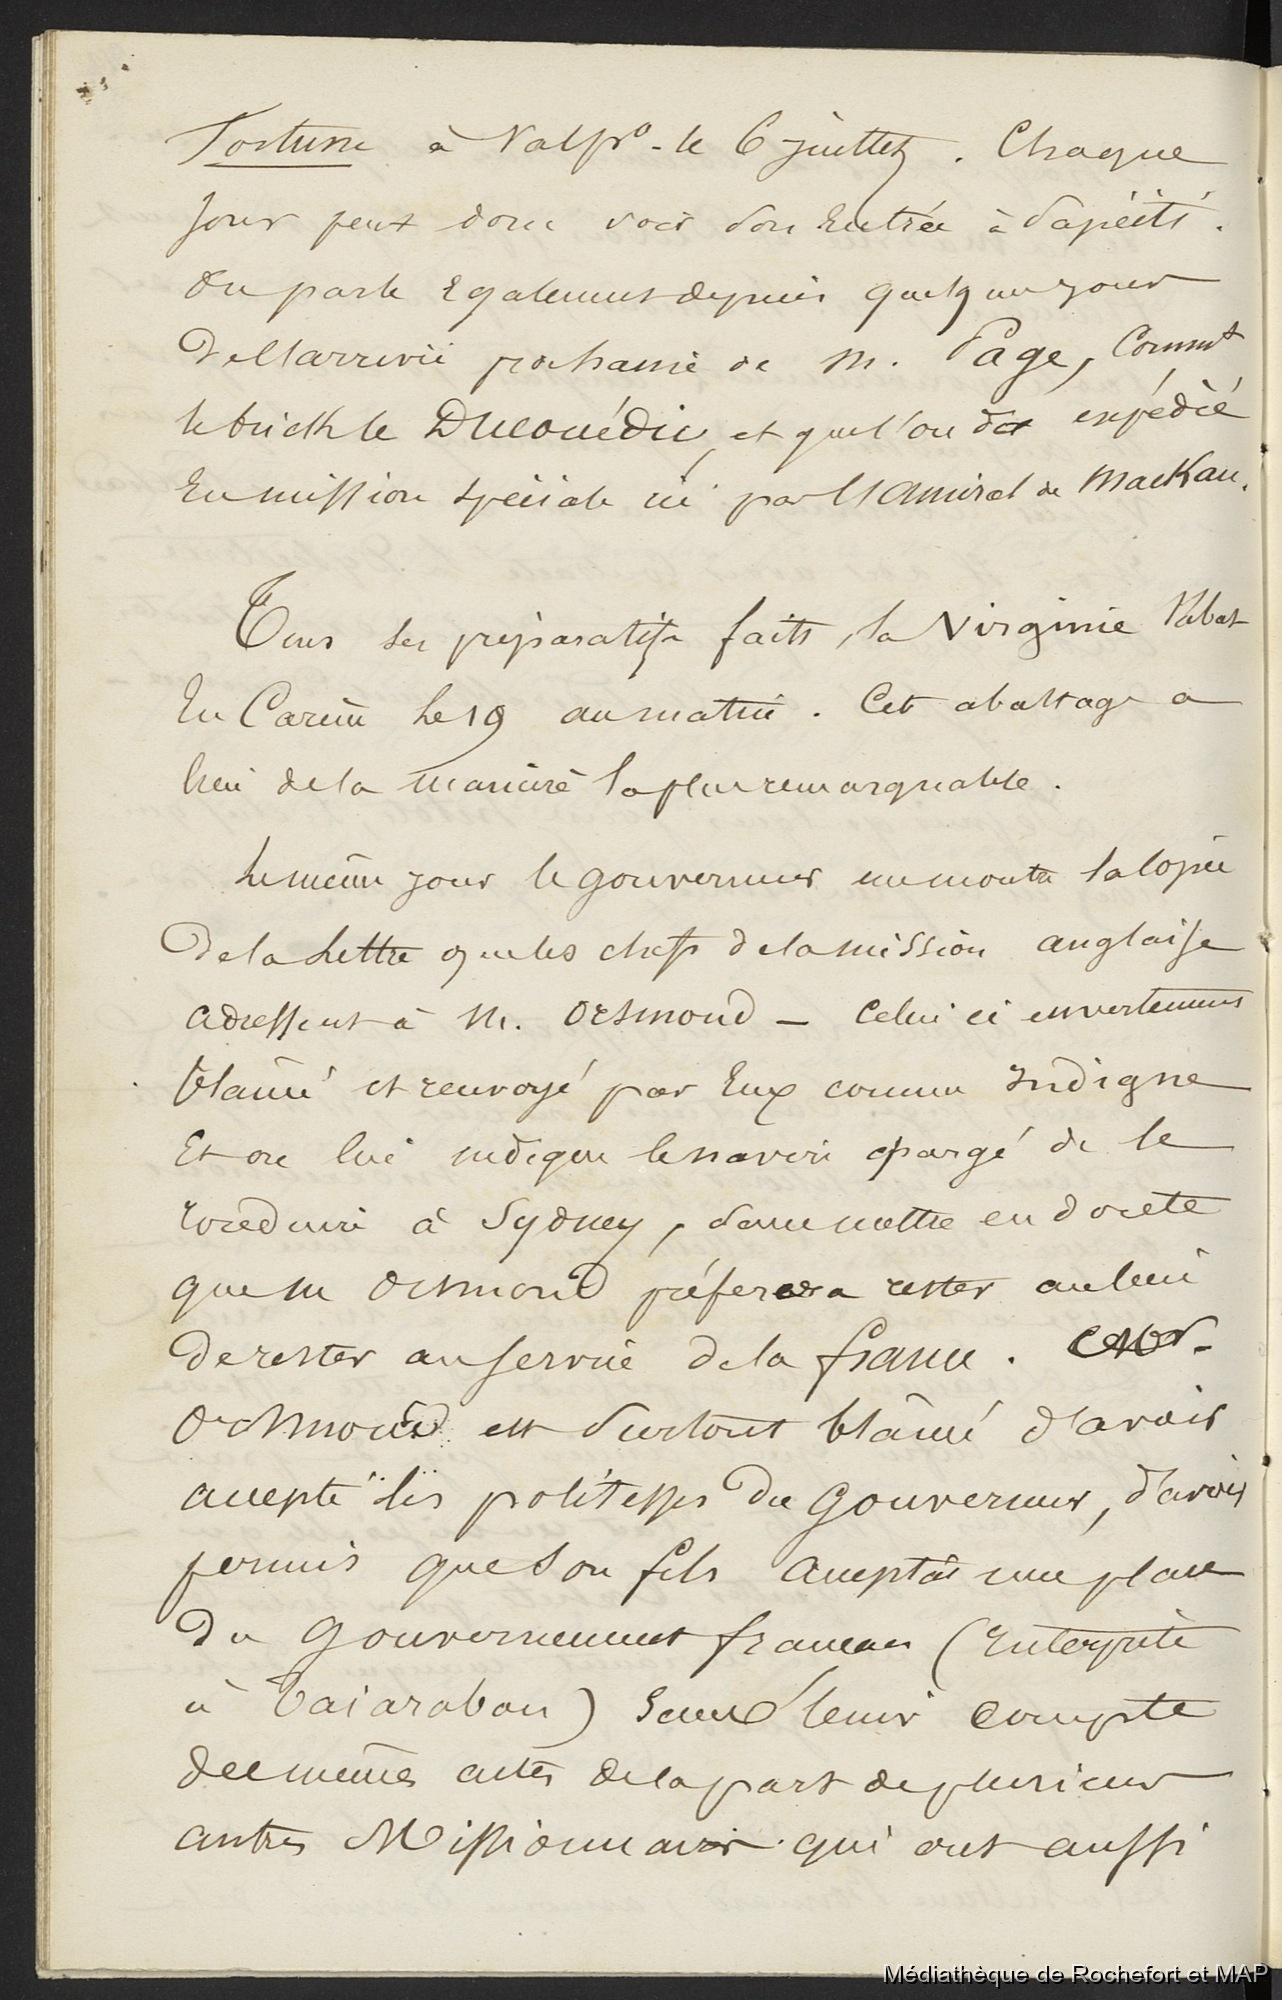 Fortune à Valpo. le 6 juillet. Chaque
jour peut donc voir son Entrée à Papéiti.
On parle Egalement depuis quelque jour
De l'arrivée prochaine de M. Page, Commt
le brick le Ducouédic, et que l'on dit expédié
En mission spéciale ici par l'Amiral de Mackau.
Tous ses préparatifs faits, la Virginie s'abat
En Carène le 19 au matin. Cet abattage a
lieu de la manière la plus remarquable.
Le même jour le gouverneur me montre la copie
De la Lettre que les chefs de la mission anglaise
adressent à M. Orsmond — Celui ci est vertement
blâmé et renvoyé par Eux comme Indigne
Et on lui indique le navire chargé de le
reconduire à Sydney, sans mettre en doute
que M Orsmond préferera rester au lieu
de rester au service de la france. Mr
Orsmond est surtout blâmé d'avoir
accepté les politesses du Gouverneur, d'avoir
permis que son fils acceptât une place
Du Gouvernement francais (Interprète
à Taiarabou) sans tenir compte
des mêmes actes de la part de plusieurs
autres Missionnaires qui ont aussi
Médiathèque de Rochefort et MAP